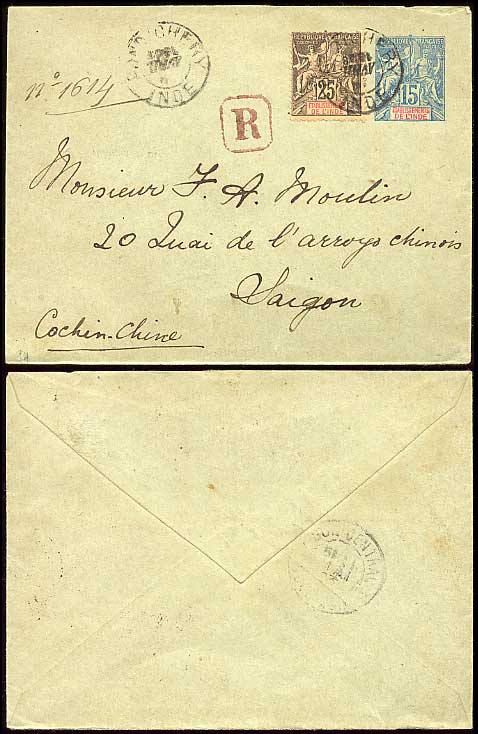 PONDICHERY
INDE
nº 1614
RÉPUBLIQUE FRANÇAISE
COLONIES
25
ÉTABLISSEMENTS
DE L'INDE
INDE
15
ÉTABLISSEMENTS
DE L'INDE
R
Monsieur F. A. Moulin
20 Quai de l'arroys chinois
Saigon
Cochin-Chine
CENTRAL